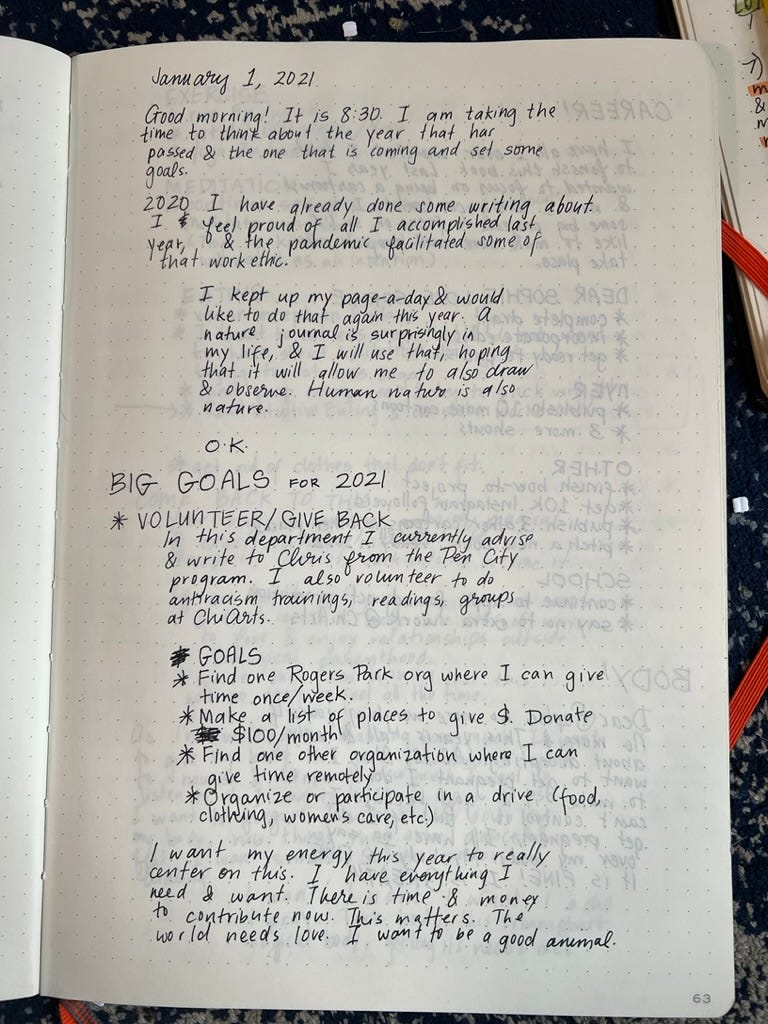 January 1, 2021
Good morning! It is 8:30. I am taking the
time to think about the year that has
passed & the one that is coming and set some
goals.
2020 I have already done some writing about.
I feel proud of all I accomplished last
year, & the pandemic facilitated some of
that work ethic.
I kept up my page-a-day & would
like to do that again this year. A
nature journal is surprisingly in
my life, & I will use that, hoping
that it will allow me to also draw
& observe. Human nature is also
nature.
O.K.
BIG GOALS FOR 2021
* VOLUNTEER/GIVE BACK
In this department I currently advise
& write to Chris from the Pen City
program. I also volunteer to do
antiracism trainings, readings, groups
at ChiArts.
GOALS
* Find one Rogers Park org where I can give
time once/week.
* Make a list of places to give $. Donate
$100/month
* Find one other organization where I can
give time remotely
* Organize or participate in a drive (food,
clothing, women's care, etc.)
I want my energy this year to really
center on this. I have everything I
need & want. There is time & money
to contribute now. This matters. The
world needs love. I want to be a good animal.
63